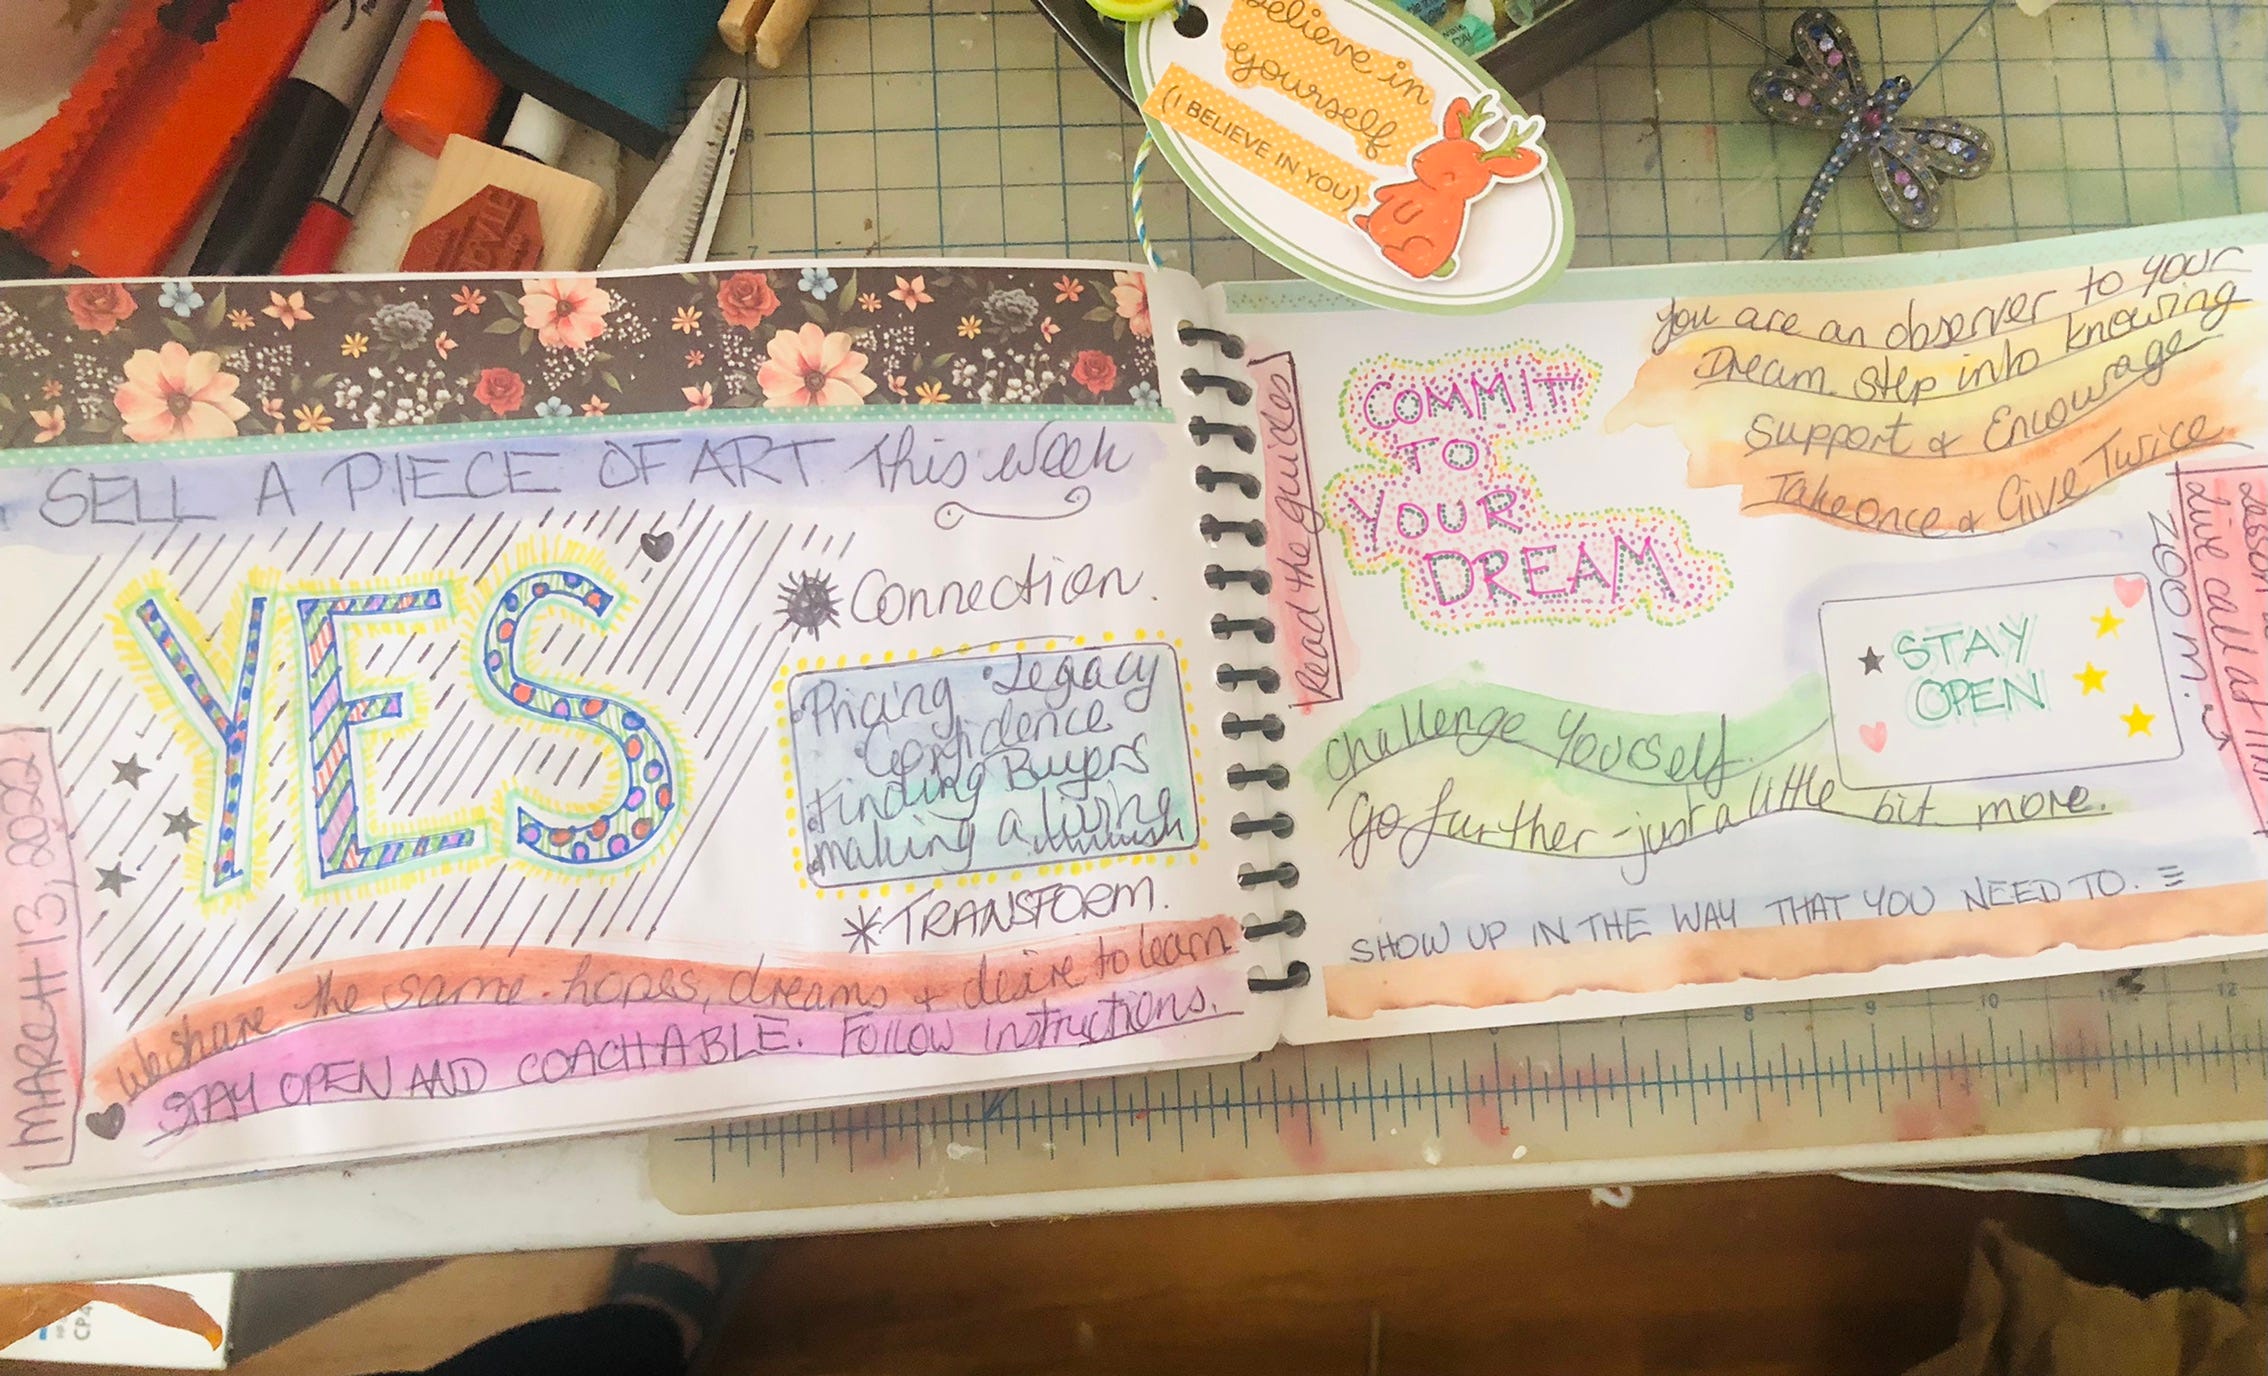 believe in
yourself
(I BELIEVE IN YOU)
SELL A PIECE OF ART This week
YES
Connection.
Pricing • Legacy
• Confidence
Finding Buyers
making a living
TRANSFORM.
We share the same hopes, dreams & desire to learn
STAY OPEN AND COACHABLE. Follow instructions.
MARCH 13, 2022
Read the guides
COMMIT
TO
YOUR
DREAM
You are an observer to your
Dream. Step into knowing
Support & Encourage
Take once & Give Twice
Live call at
STAY
OPEN
Challenge Yourself.
Go further - just a little bit more.
SHOW UP IN THE WAY THAT YOU NEED TO.
7
8
9
10
11
12